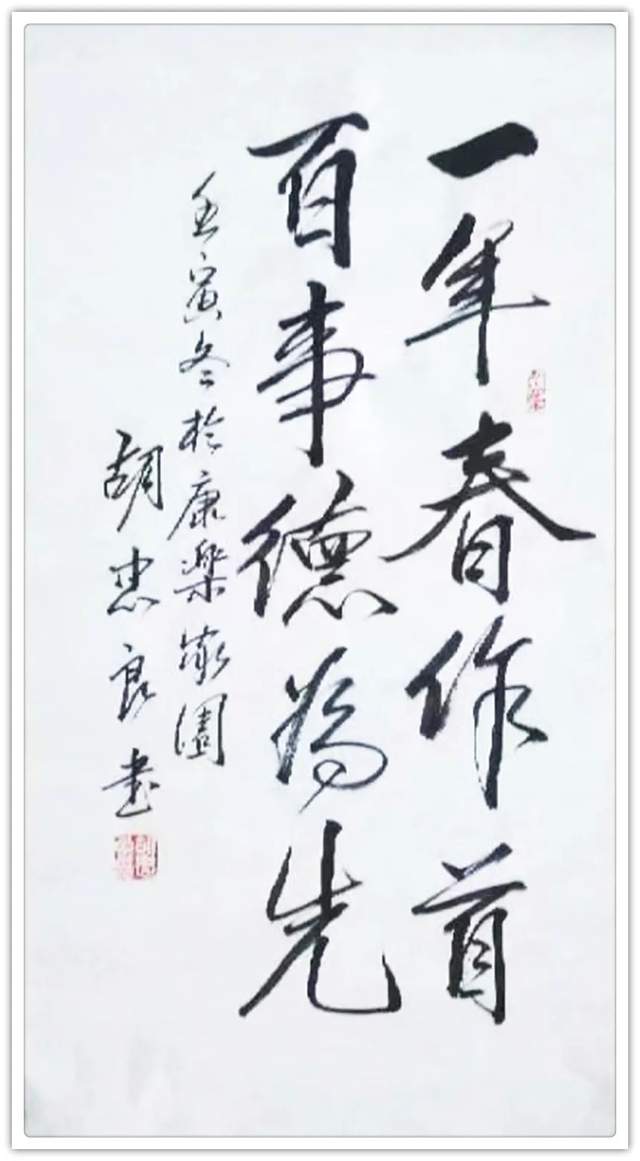 一年春作首
百事德為先
壬寅冬於康樂家園
胡忠良書